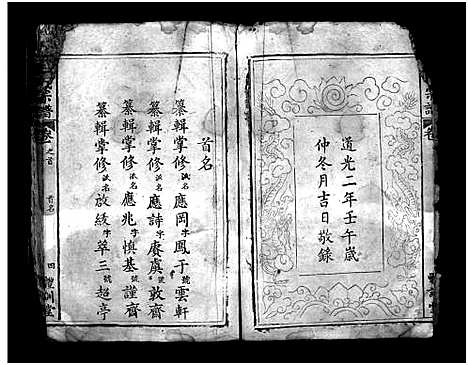 道光二年壬午歲
仲冬月吉日敬錄
首名
纂輯掌修派名應岡字鳳于號雲軒
纂輯掌修派名應詩字賡虞號敦齋
纂輯掌修派名應兆字慎基號謹齋
纂輯掌修派名啟綾字萃三號超亭
宗譜
卷之首
首名
四